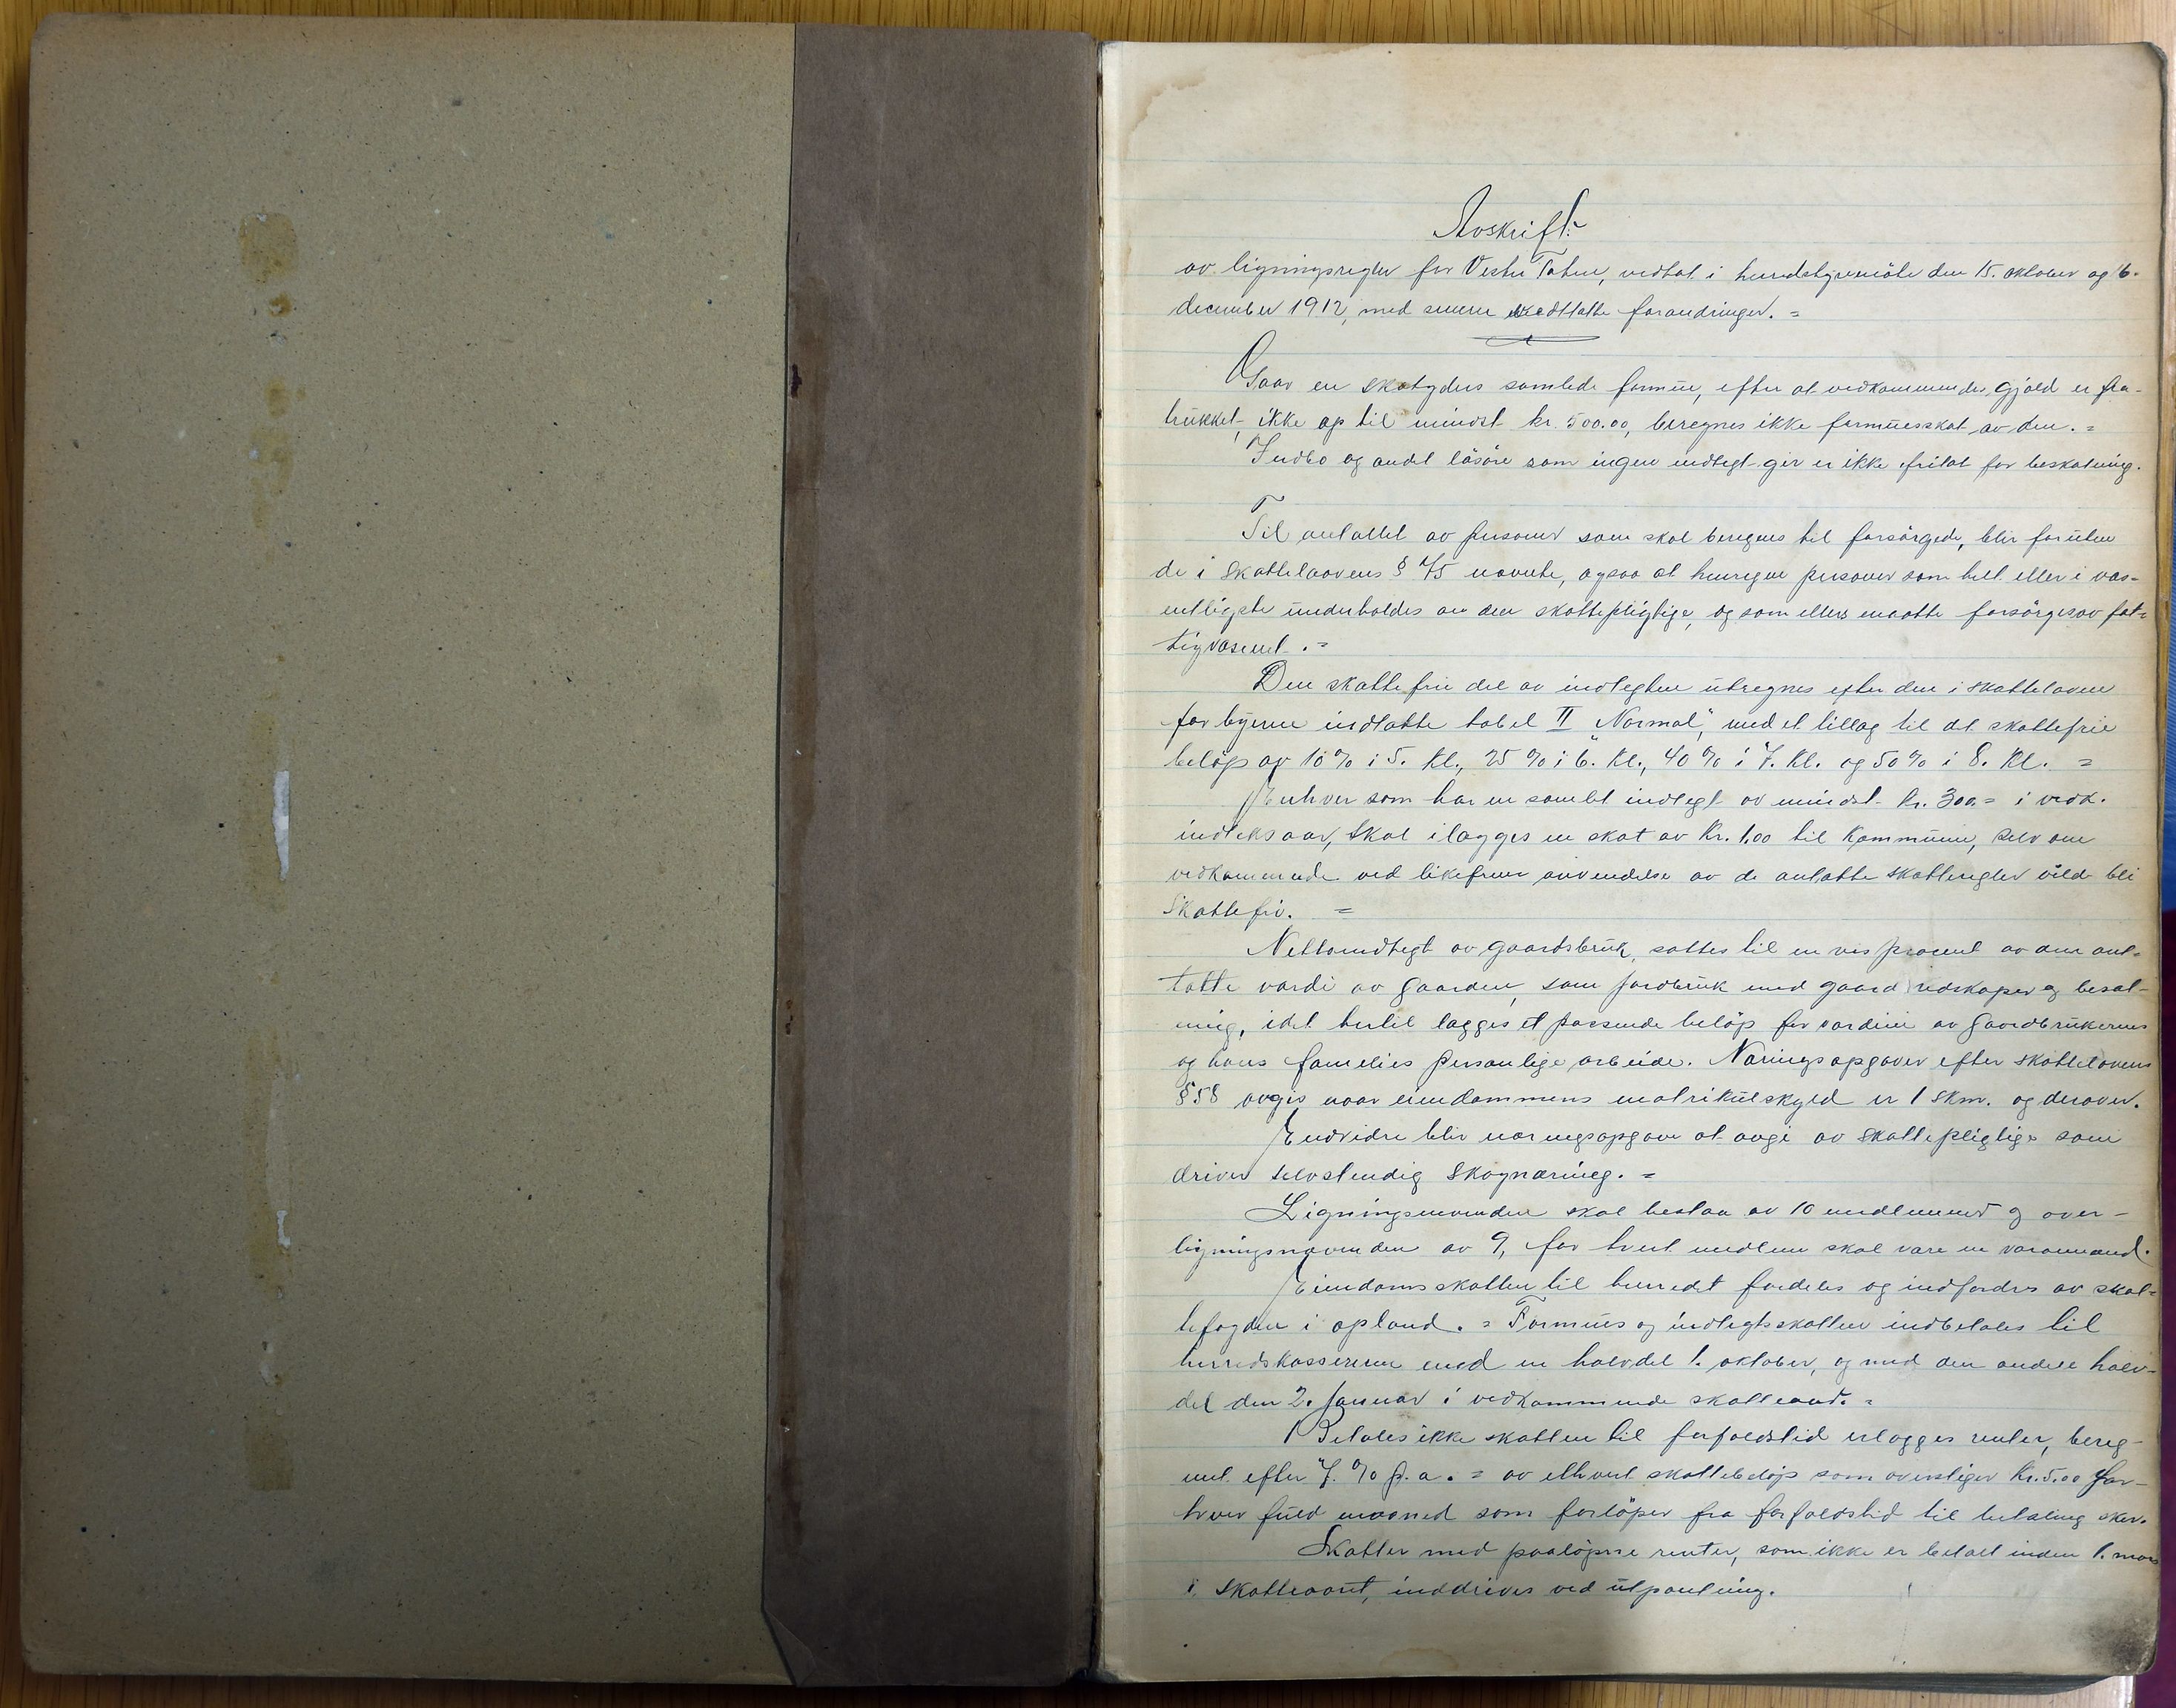 Avskrift
av ligningsregler for Vestre Toten, vedtat i herredstyremöte den 15. oktober og 16.
december 1912, med senere vedtatte forandringer. =
Gaar en skatyders samlede formue, efter at vedkommendes gjæld er fra-
trukket, ikke op til mindst kr. 500.00, beregnes ikke formuesskat av den. =
Indbo og andet lösöre som ingen indtegt gir er ikke fritat for beskatning.
Til antallet av personer som skal beregnes til forsörgede, blir foruten
de i skattelaavens § 75 nævnte, ogsaa at henregne personer som helt eller i væs-
entligste underholdes av den skattepligtige, og som ellers maatte forsörges av fat=
tigvæsenet. =
Den skattefrie del av indtegten utregnes efter den i skatteloven
for byerne indtatte tabel II "Normal", med et tillæg til det skattefrie
belöp av 10 % i 5. Kl., 25 % i 6. Kl., 40 % i 7. Kl. og 50 % i 8. Kl. =
Enhver som har en samlet indtegt av mindst kr. 300.= i vedk.
indteksaar, skal ilægges en skat av Kr. 1,00 til Kommunen, selv om
vedkommende ved likefrem anvendelse av de antatte skatteregler vilde bli
Skattefri. =
Nettoindtegt av gaardsbruk, sættes til en vis procent av den ant-
tatte værdi av gaarden, som jordbruk med gaardredskaper og besæt-
ning, idet hertil lægges et passende belöp for værdien av gaardbrukerens
og hans families personlige arbeide. Næringsopgaver efter skattelovens
§ 58 avgis naar eiendommens matrikulskyld er 1 skm. og derover.
Endvidre blir næringsopgave at avgi av skattepligtige som
driver selvstendig Skognæring. =
Ligningsnevnden skal bestaa av 10 medlemmer og over-
ligningsnævnden av 9, for hvert medlem skal være en varamand.
Eiendomsskatten til herredet fordeles og indfordres av skat=
tefogden i opland. = Formues og indtegtsskatten indbetales til
herredskassereren med en halvdel 1. oktober, og med den anden halv-
del den 2. Januar i vedkommende skatteaar. =
Betales ikke skatten til forfaldstid erlægges renter, bereg-
net efter 7. % p. a. = av ethvert skattebelöp som overstiger Kr. 5.00 for
hver fuld maaned som forlöper fra forfaldstid til betaling sker.
Skatter med paalöpne renter, som ikke er betalt inden 1. mars
i skatteaaret, inddrives ved utpantning.